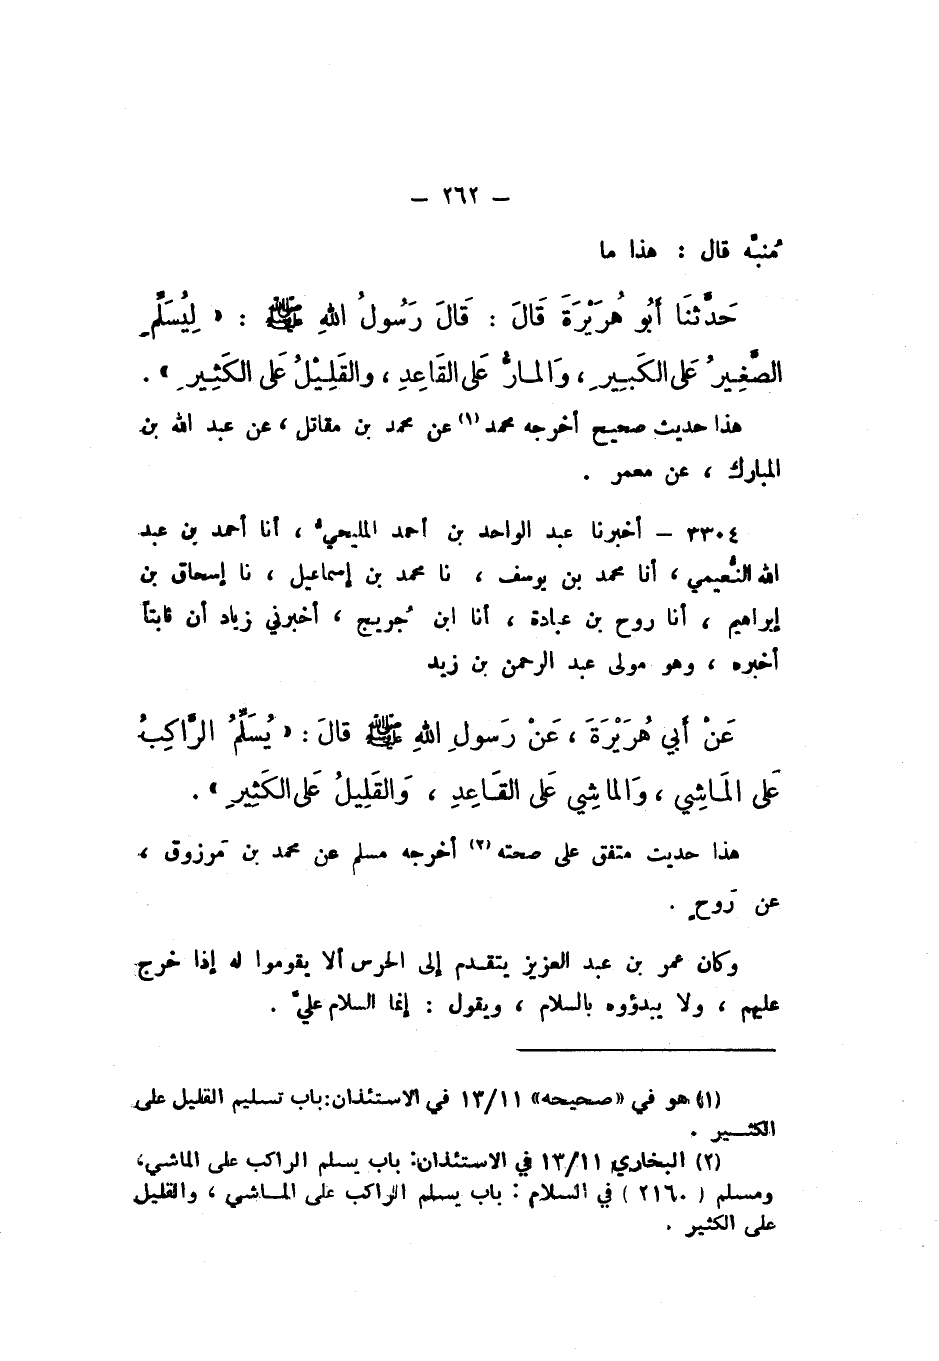 — ٢٦٢ —
مُنبِّه قال : هذا ما
حَدَّثَنَا أَبُو هُرَيْرَةَ قَالَ : قَالَ رَسُولُ اللهِ ﷺ : « لِيُسَلِّمِ
الصَّغِيرُ عَلى الكَبِيرِ ، وَالمارُّ عَلَى القَاعِدِ ، والقَلِيْلُ عَلى الكَثِيرِ » .
هذا حديث صحيح أخرجه محمد (١) عن محمد بن مقاتل ، عن عبد الله بن
المبارك ، عن معمر .
٣٣٠٤ — أخبرنا عبد الواحد بن أحمد المليحيُّ ، أنا أحمد بن عبد
الله النُّعيمي ، أنا محمد بن يوسف ، نا محمد بن إسماعيل ، نا إسحاق بن
إبراهيم ، أنا روح بن عبادة ، أنا ابن جُريج ، أخبرني زياد أن ثابتاً
أخبره ، وهو مولى عبد الرحمن بن زيد
عَنْ أَبي هُرَيْرَةَ ، عَنْ رَسولِ اللهِ ﷺ قالَ : « يُسَلِّمُ الرَّاكِبُ
عَلى المَاشِي ، وَالماشِي عَلى القَاعِدِ ، وَالقَلِيلُ عَلى الكَثِيرِ » .
هذا حديث متفق على صحته (٢) أخرجه مسلم عن محمد بن مَرزوق ،
عن رَوحٍ .
وكان عمر بن عبد العزيز يتقدم إلى الحرس ألا يقوموا له إذا خرج
عليهم ، ولا يبدؤوه بالسلام ، ويقول : إنما السلام عليَّ .
(١) هو في «صحيحه» ١٣/١١ في الاستئذان: باب تسليم القليل على
الكثير .
(٢) البخاري ١٣/١١ في الاستئذان: باب يسلم الراكب على الماشي،
ومسلم ( ٢١٦٠ ) في السلام : باب يسلم الراكب على الماشي ، والقليل
على الكثير .